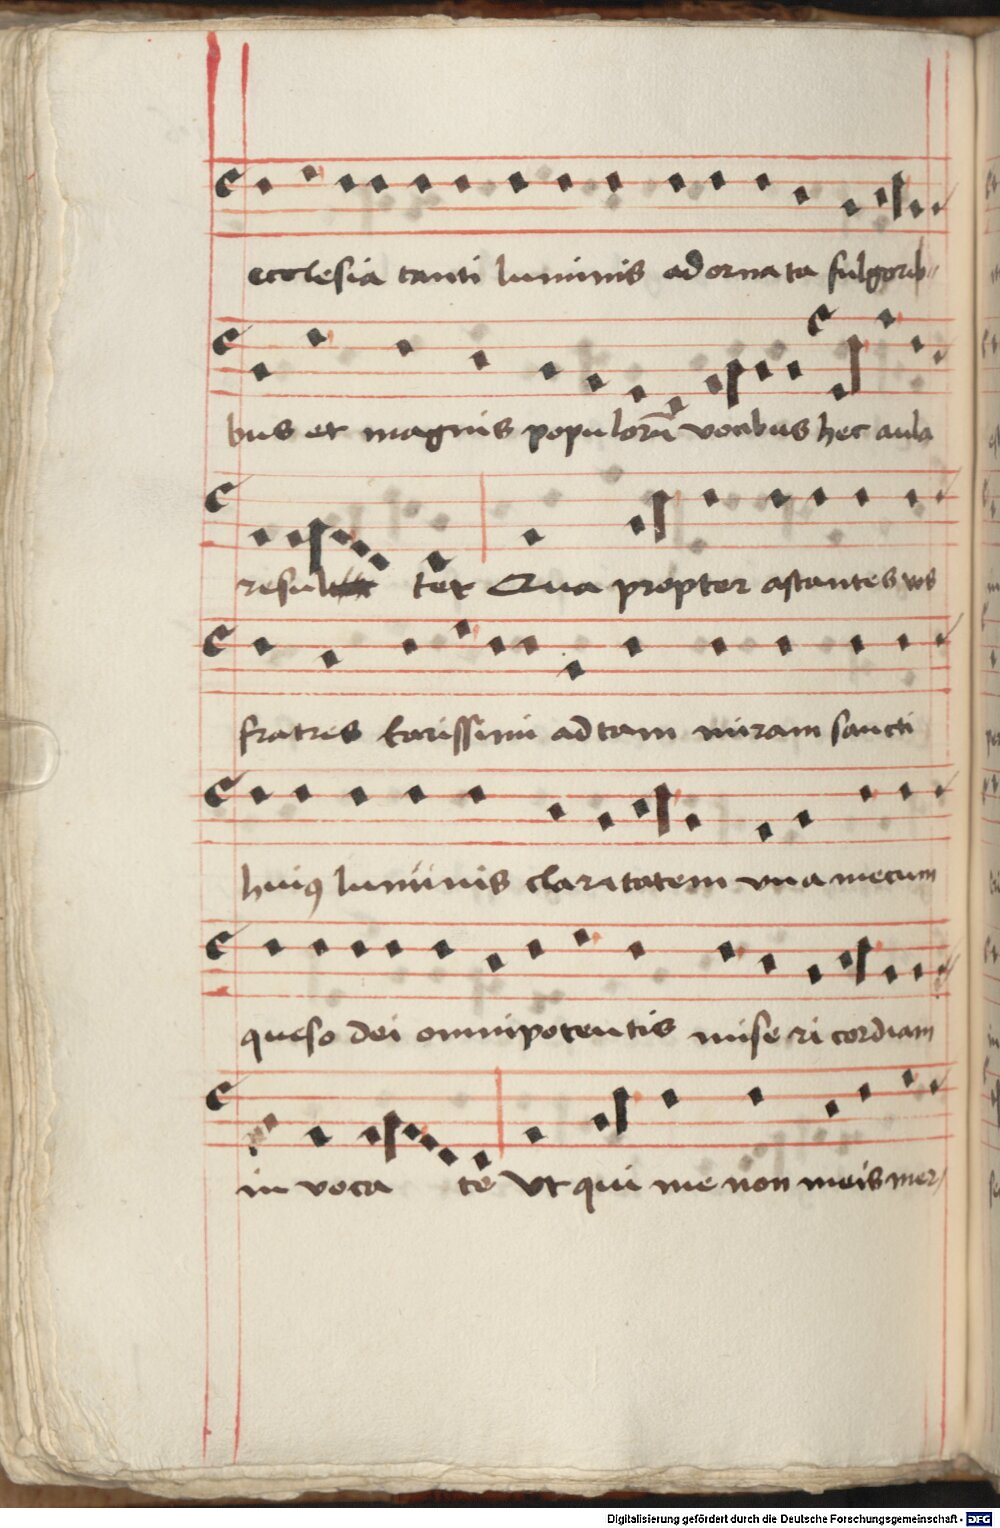 ecclesia tanti luminis adornata fulgorib
bus et magnis populorū vocibus hec aula
resul tet Qua propter astantes vos
fratres karissimi ad tam miram sancti
huiꝰ luminis claritatem vna mecum
queso dei omnipotentis mise ri cordiam
in voca te Vt qui me non meis mer
Digitalisierung gefördert durch die Deutsche Forschungsgemeinschaft - DFG